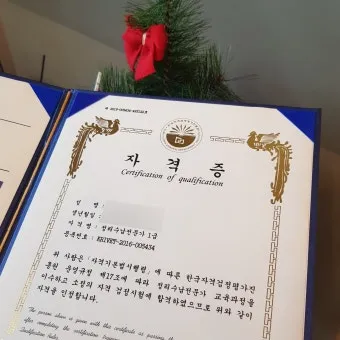 자 격 증
Certification of qualification
성 명 :
생년월일 :
자 격 명 : 정리수납전문가 1급
등록번호 : KEIVET-2016-005434
위 사람은 「자격기본법시행령」에 따른 한국자격검정평가진
흥원 운영규정 제17조에 따라 정리수납전문가 교육과정을
이수하고 소정의 자격 검정시험에 합격하였으므로 위와 같이
자격을 인정합니다.
The person above is given with this certificate as passing the
after completing the